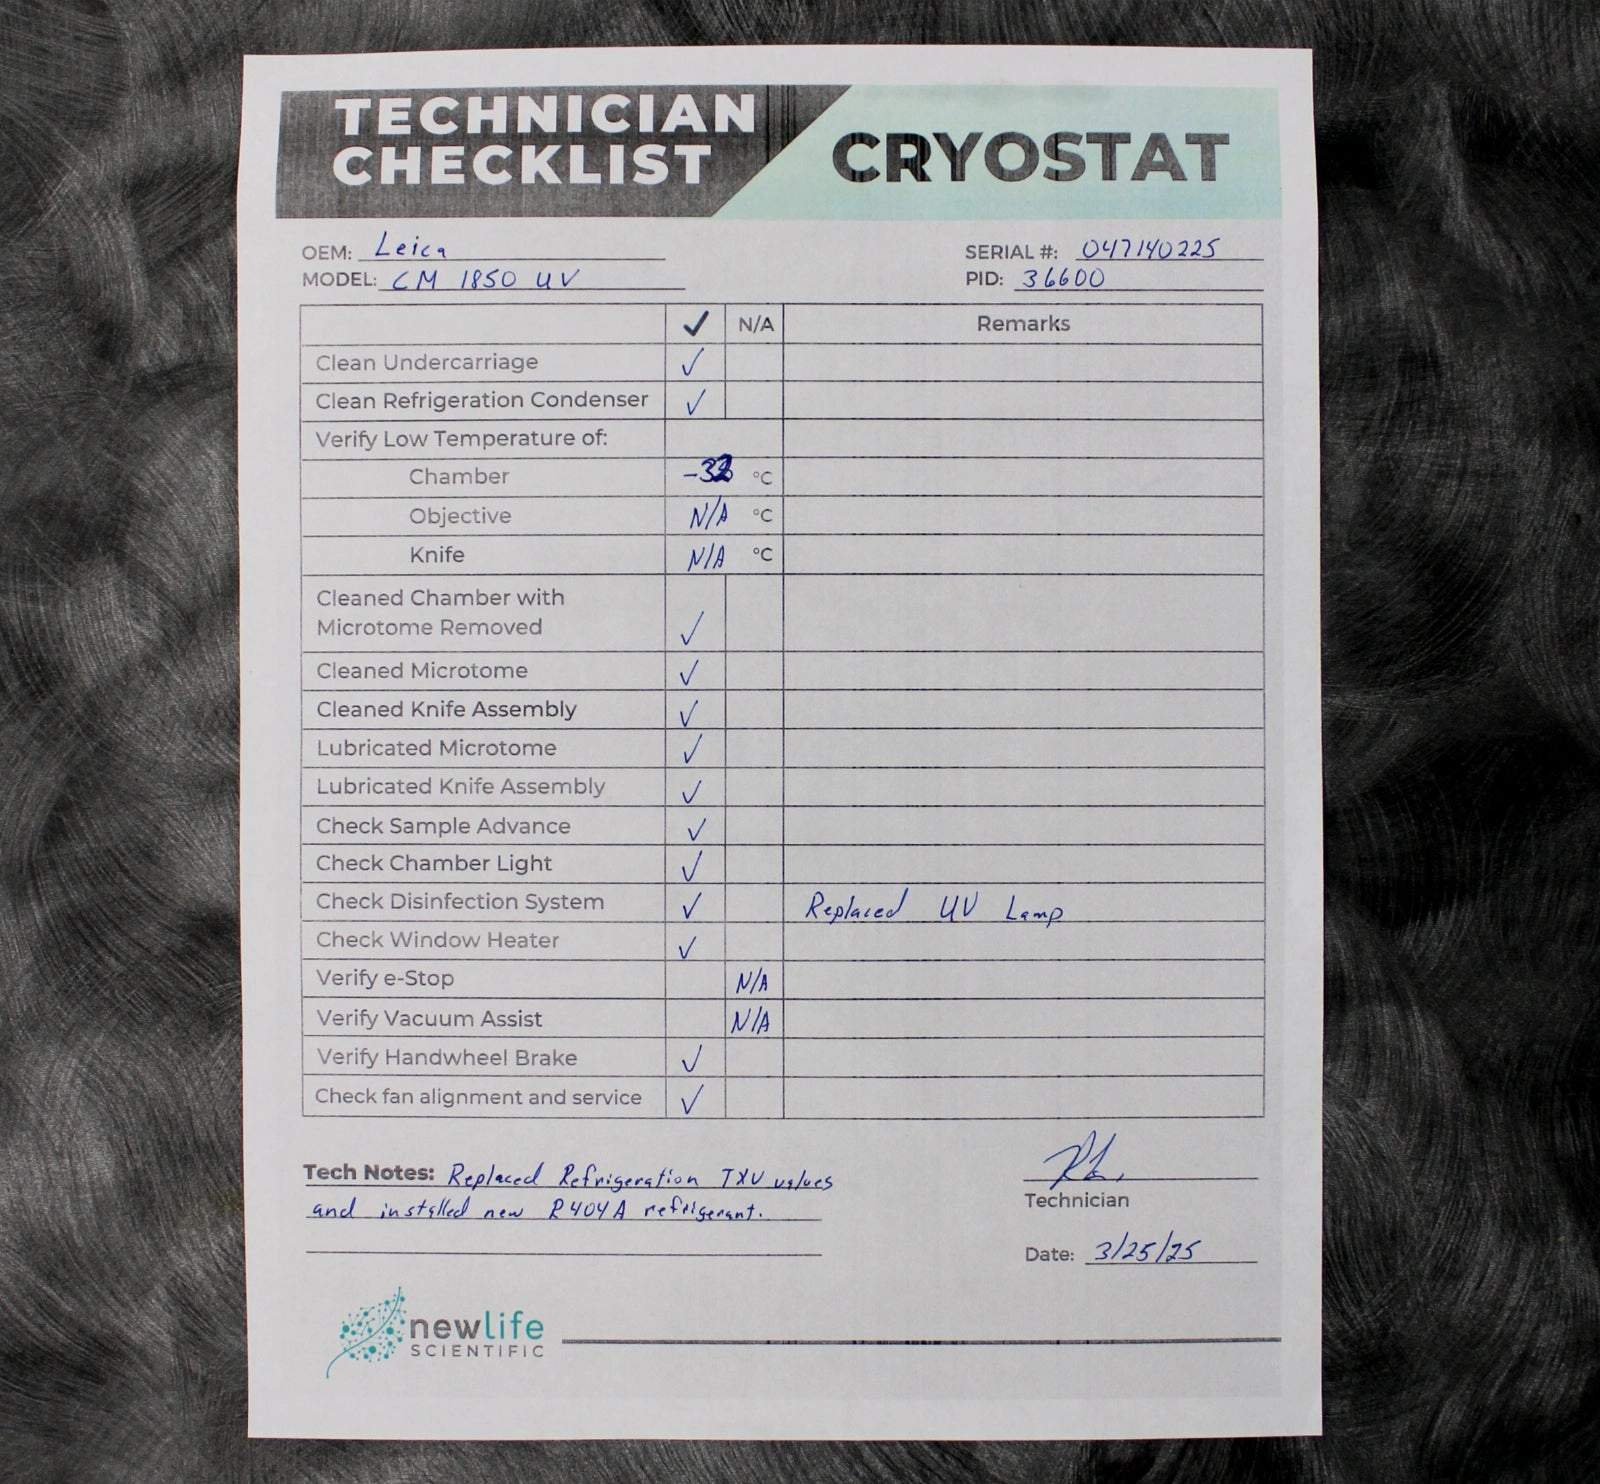 TECHNICIAN
CHECKLIST
CRYOSTAT
OEM: Leica
SERIAL #: 047140225
MODEL: CM 1850 UV
PID: 36600
✓ N/A Remarks
Clean Undercarriage ✓
Clean Refrigeration Condenser ✓
Verify Low Temperature of:
Chamber °C
Objective N/A °C
Knife N/A °C
Cleaned Chamber with
Microtome Removed ✓
Cleaned Microtome ✓
Cleaned Knife Assembly ✓
Lubricated Microtome ✓
Lubricated Knife Assembly ✓
Check Sample Advance ✓
Check Chamber Light ✓
Check Disinfection System ✓ Replaced UV Lamp
Check Window Heater ✓
Verify e-Stop N/A
Verify Vacuum Assist N/A
Verify Handwheel Brake ✓
Check fan alignment and service ✓
Tech Notes: Replaced Refrigeration TXV valves
and installed new R404A refrigerant.
Technician
Date: 3/25/25
newlife
SCIENTIFIC